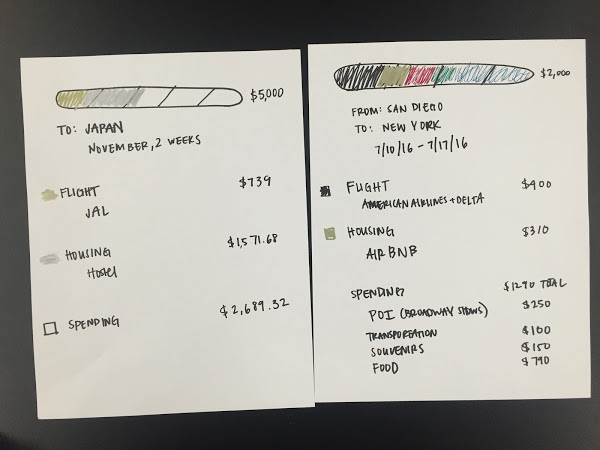 $5,000
TO: JAPAN
NOVEMBER, 2 WEEKS
FLIGHT $739
JAL
HOUSING $1,571.68
Hostel
SPENDING $2,689.32
$2,000
FROM: SAN DIEGO
TO: NEW YORK
7/10/16 - 7/17/16
FLIGHT $400
AMERICAN AIRLINES + DELTA
HOUSING $310
AIR BNB
SPENDING $1290 TOTAL
POI (BROADWAY SHOWS) $250
TRANSPORTATION $100
SOUVENIRS $150
FOOD $790